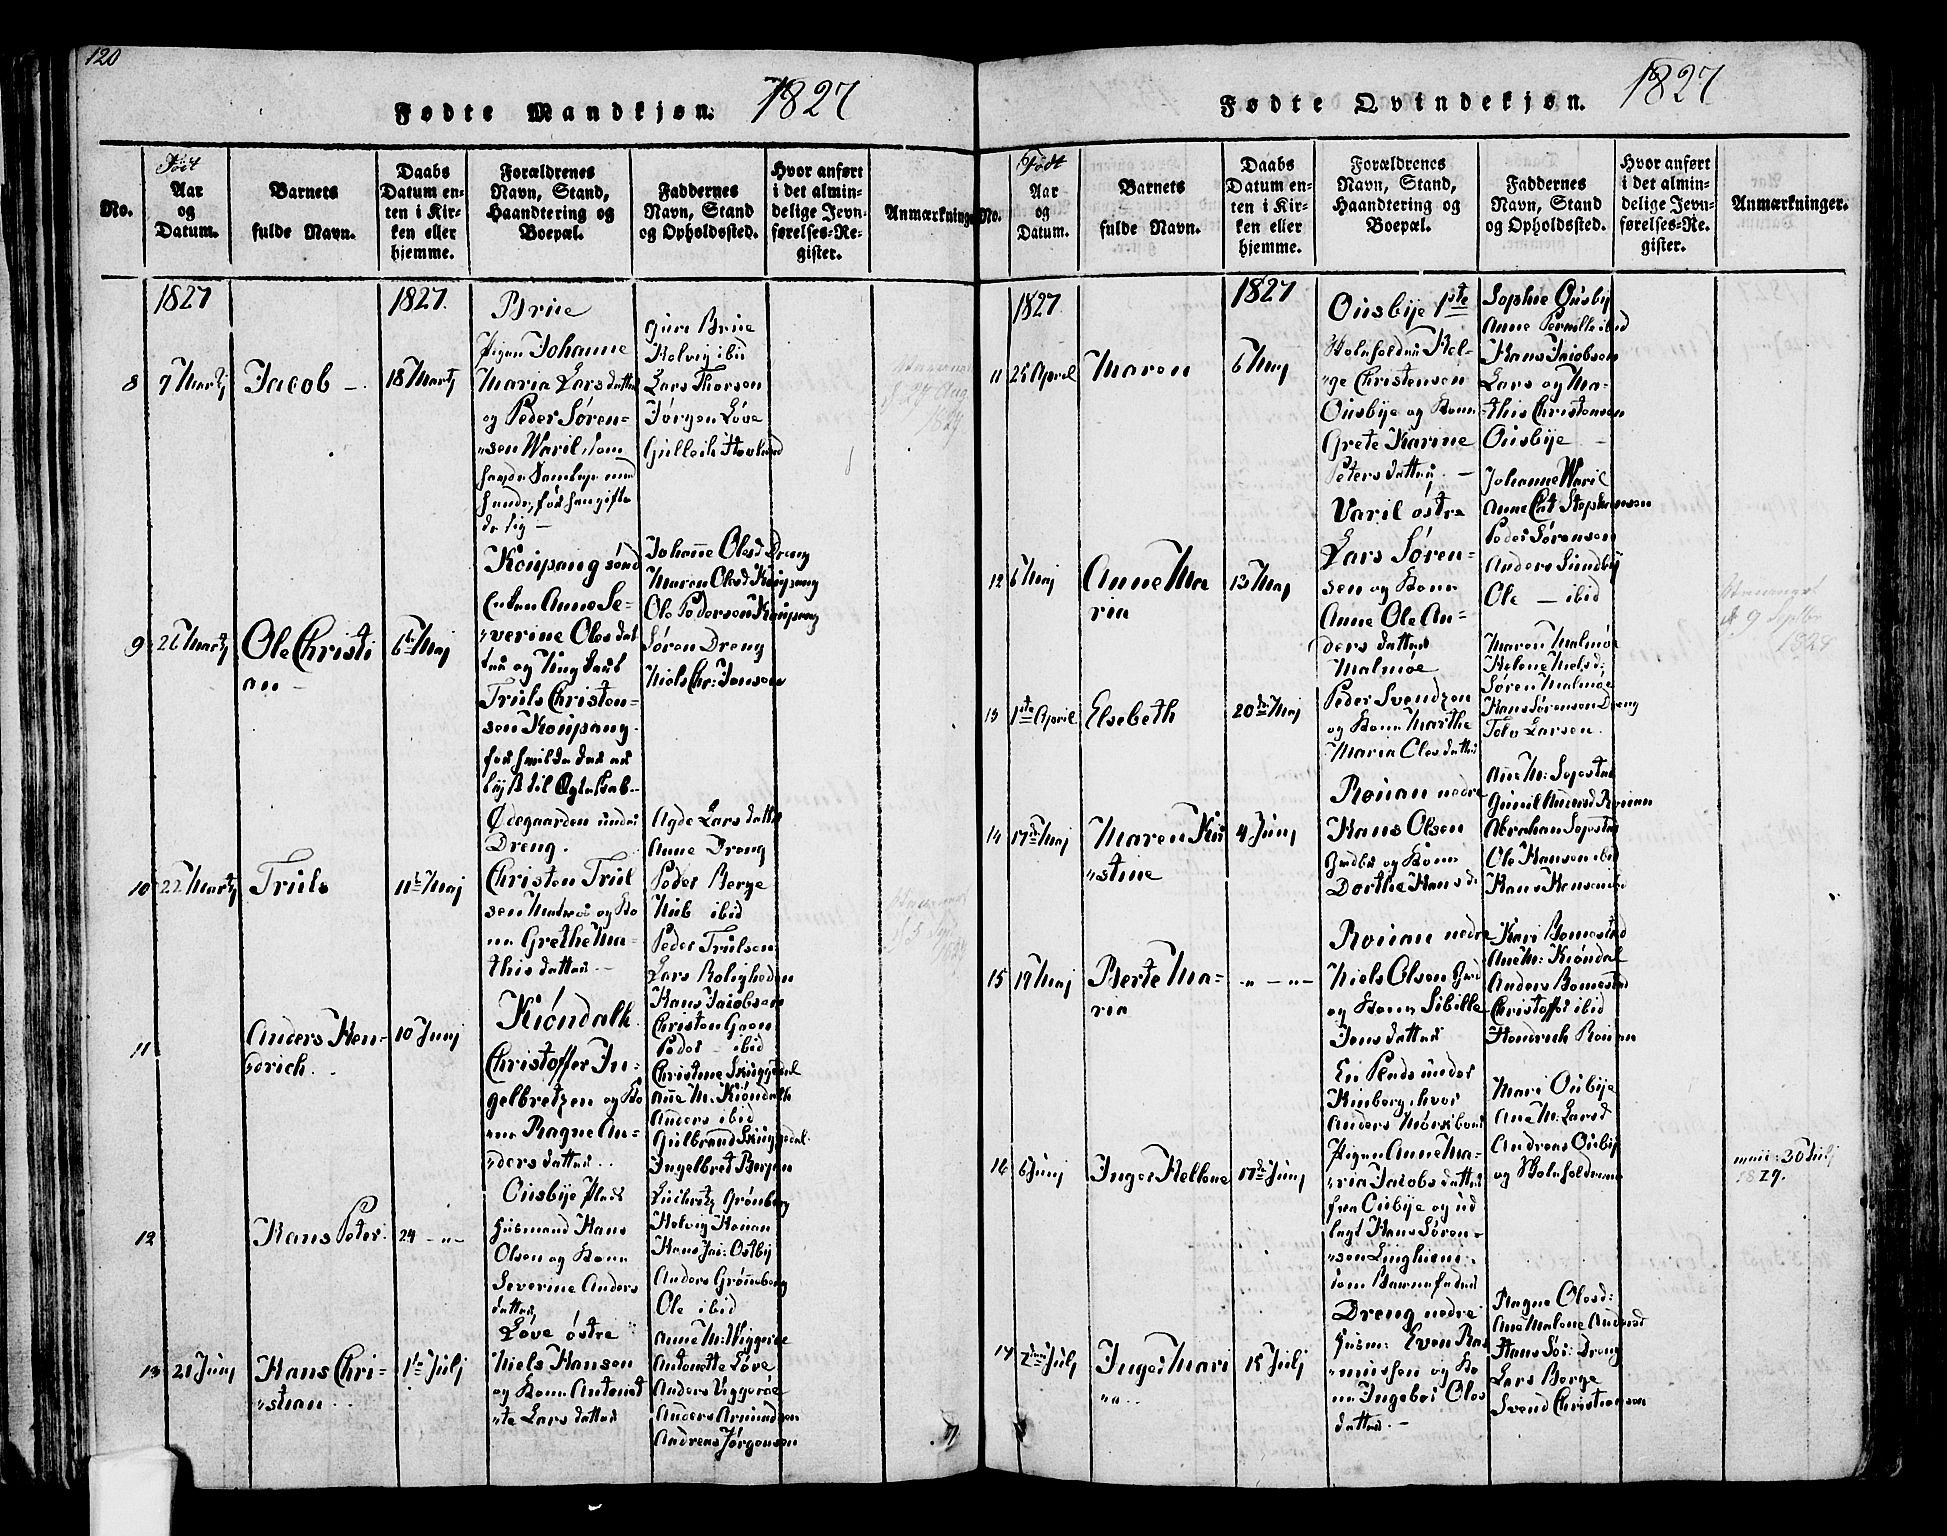 120
Fødte Mandkjøn. 1827
No.
Født
Aar
og
Datum.
Barnets
fulde Navn.
Daabs
Datum en-
ten i Kir-
ken eller
hjemme.
Forældrenes
Navn, Stand,
Haandtering og
Boepæl.
Faddernes
Navn, Stand
og Opholdssted.
Hvor anført
i det almin-
delige Jevn-
førelses-Re-
gister.
Anmærkninge
1827
1827.
8
7 Martj
Jacob –
18 Martj
Briie
Pigen Johanne
Maria Lars datter
og Peder Søren-
sen Waril, som
Guri Briie
Kolvig ibid
Lars Thorsen
Jørgen Løve
24 Aug.
9
26 Martj
Ole Christi
an –
6te Maj
Koupang sønd
Enken Anne Se-
verine Oles dat
ter og Ung karl
Truls Christen-
sen Koupang
Johanne Olesd Dreng
Maren Olesd Koupang
Ole Pedersen Koupang
Søren Dreng
Niels Chr: Jonsen
10
22 Martj
Truls
11te Maj
Ødegaarden under
Dreng.
Christen Trul
sen Matros og Ko
ne Grethe Ma-
this datter –
Agde Lars datter
Anne Dreng
Peder Berge
Nub ibid
Peder Trulsen
Lars Roligheden
11
Anders Hen-
drich.
10 Junj
Kiøndalk
Christoffer In-
gelbretzen og Ko
ne Ragne An-
ders datter..
Hans Jacobsen
Christen Goon
Peder – ibid
Christine Skuggedal
Anne M. Kiøndalk
Anders ibid
Gulbrand Skuggedal
Ingelbret Bergan
12
Hans Peter.
24 – " –
Ousbye Plads
Husmand Hans
Olsen og Kone
Severine Anders
datter
Grønberg
Holvig Rouan
Hans Jac: Ostby
Anders Grønneberg
Ole ibid
13
21 Junj
Hans Chri-
stian..
1te Julj
Løve østre
Niels Hansen
og Kone Antonet
te Lars datter
Anne M: Wiggerøe
Antonette Løve
Anders Viggerøe
Anders Amundsen
Andreas Jørgensen
Fødte Qvindekjøn. 1827
No.
Født
Aar
og
Datum.
Barnets
fulde Navn.
Daabs
Datum en-
ten i Kir-
ken eller
hjemme.
Forældrenes
Navn, Stand,
Haandtering og
Boepæl.
Faddernes
Navn, Stand
og Opholdssted.
Hvor anført
i det almin-
delige Jevn-
førelses-Re-
gister.
Anmærkninger.
1827
1827
11
25 April
Maren
6 Maj
Ousbye 1ste
Skoleholder Hel-
ge Christensen
Ousbye og Kone
Grete Karine
Peters datter –
Sophie Ousby
Anne Pernille ibid
Hans Jacobsen
Lars og Ma-
this Christensen
Ousbye –
12
6 Maj
Anne Ma
ria
13 Maj
Varil østre
Lars Søren-
sen og Kone
Anne Ole An-
ders datter
Johanne Waril
Anne Cat Stephensen
Peder Sørensen
Anders Lundby
Ole – ibid
9 Septbr
13
1ste April
Elsebeth
20de Maj
Malmøe
Peder Svendzen
og Kone Marthe
Maria Oles datter
Maren Malmøe
Helene Nielsd:
Søren Malmøe
Hans Sørensen Dreng
Tolv Larsen.
14
17de Maj
Maren Kir
stine
4 Junj
Rouan nedre
Hans Olsen
og Kone
Dorthe Hans d.
Anne M: Sopestad
Gunil Andersd Rouan
Abraham Sopestad
Ole Hansen ibid
Hans Hansen ibid
15
19 Maj
Berte Ma-
ria
" – " –
Rouan nedre
Niels Olsen
og Kone Sibille
Jens datter
Kari Bomestad
Ane M: Kiøndal
Anders Bomestad
Christoffer ibid
Hendrich Rouan
16
6 Junj
Inger Hellene
17de Junj
En Plads under
Kinberg, hvor
Anders Mørk boer
Pigen Anne Ma-
ria Jacobs datter
fra Ousbye og ud
lagt Hans Søren-
sen
som Barnefader
Mari Ousbye
Ane M: Larsd
Andreas Ousby
og Skoleholderen
30 Julj
1829.
17
2den Julj
Inger Mari
"a..
15 Julj
Dreng nedre
Husm: Even Ras
mussen og Ko
ne Ingebor Oles
datter. –
Ragne Olesd:
Ane Malene Andersd
Hans Sør: Dreng
Lars Berge
Svend Christiansen